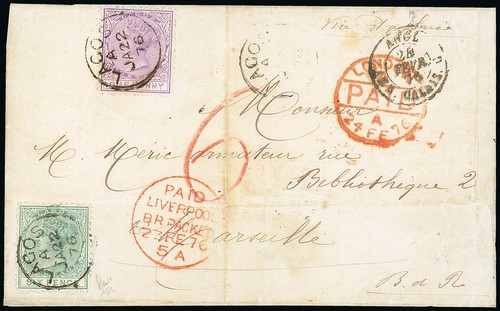 LAGOS
JA 22
76
ONE PENNY
LAGOS
ANGL.
CALAIS
LONDON
PAID
A
24 FE 76
6
Monsieur
M. Meric armateur rue
Bibliothèque 2
Marseille
B. d R
PAID
LIVERPOOL
BR PACKET
23 FE 76
5 A
LAGOS
JA 22
76
SIX PENCE